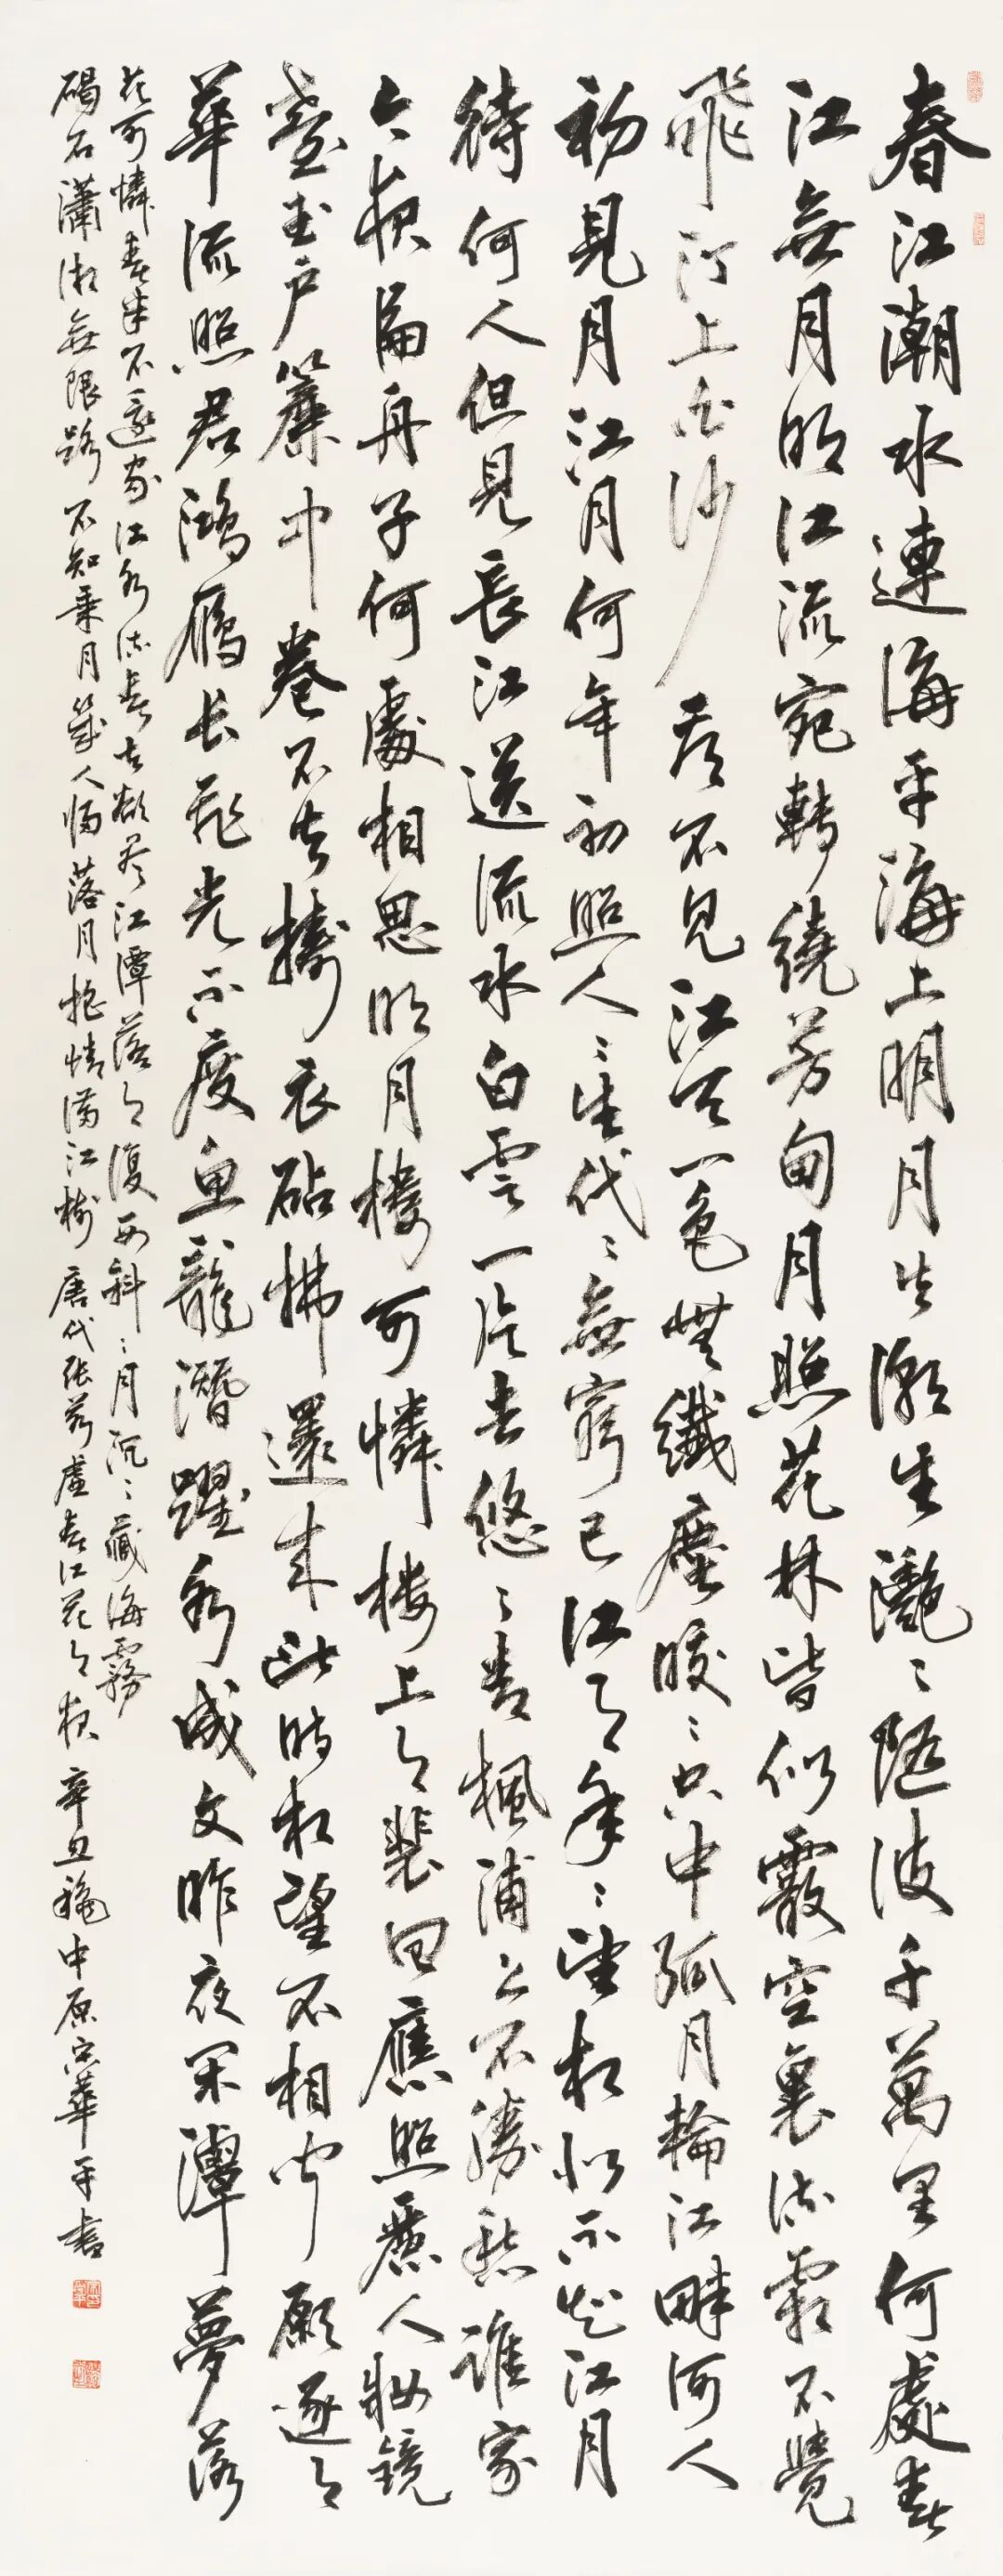 春江潮水連海平海上明月共潮生灩〻隨波千萬里何處春
江無月明江流宛轉繞芳甸月照花林皆似霰空裏流霜不覺
飛汀上白沙看不見江天一色無纖塵皎〻空中孤月輪江畔何人
初見月江月何年初照人〻生代〻無窮已江月年〻望相似不知江月
待何人但見長江送流水白雲一片去悠〻青楓浦上不勝愁誰家
今夜扁舟子何處相思明月樓可憐楼上月裴回應照離人妝鏡
臺玉户簾中卷不去擣衣砧拂還來此時相望不相聞願逐月
華流照君鴻雁长飛光不度魚龍潛躍水成文昨夜閑潭夢落
花可憐春半不還家江水流春去欲盡江潭落月復西斜〻月沉〻藏海霧
碣石瀟湘無限路不知乘月幾人歸落月搖情滿江樹 唐代張若虛春江花月夜 辛丑秋中原宋華平書